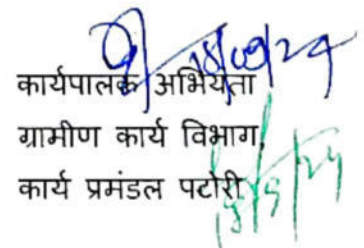 18/09/24
कार्यपालक अभियंता
ग्रामीण कार्य विभाग,
कार्य प्रमंडल पटोरी